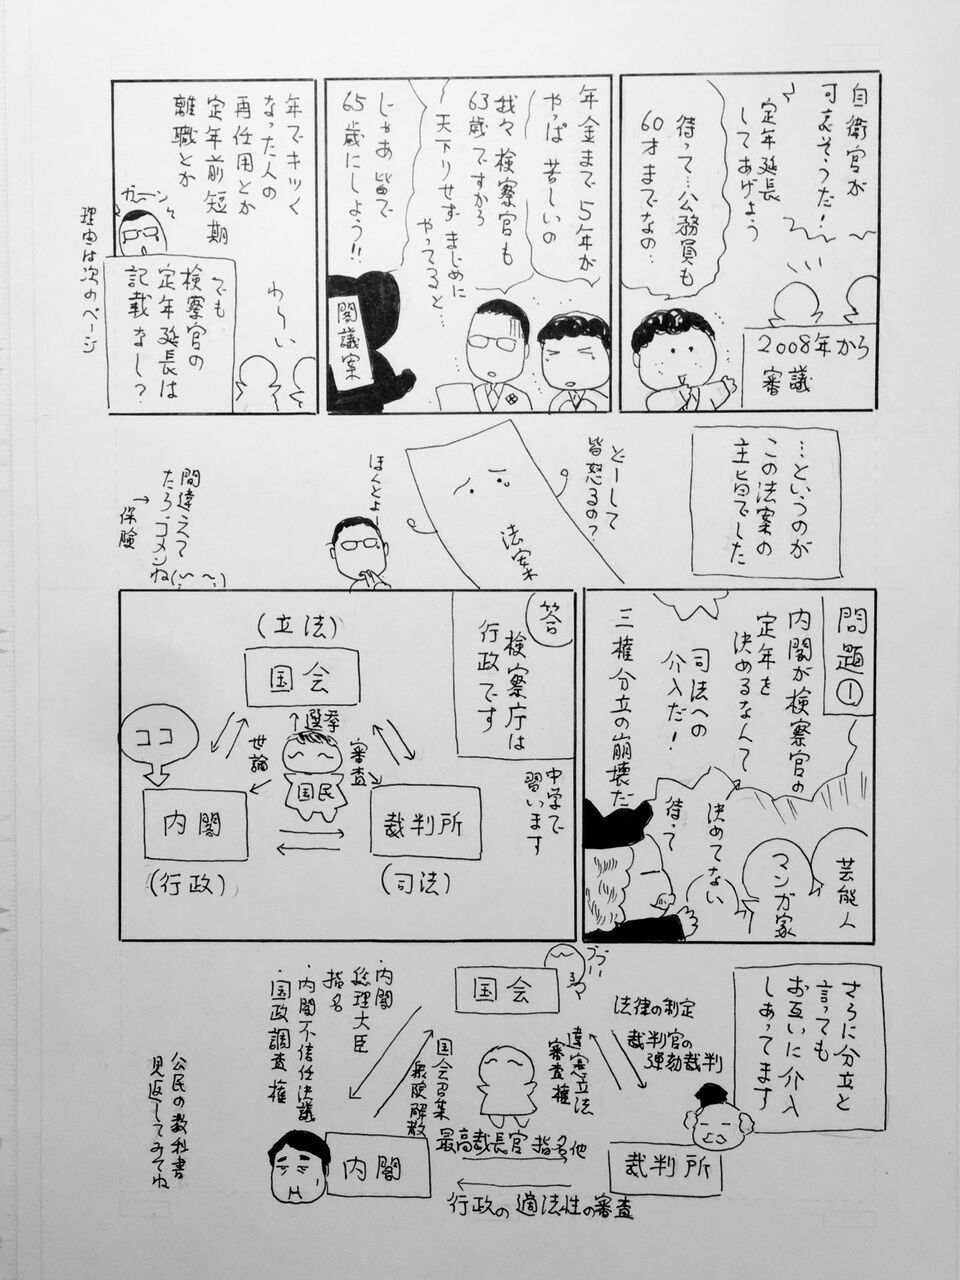 自衛官が
可哀そうだ!
定年延長
してあげよう
待って…公務員も
60才までなの…
2008年から
審議
年金まで5年が
やっぱ苦しいの
我々検察官も
63歳ですから
天下りせずまじめに
やってると…
じゃあ皆で
65歳にしよう!!
閣議案
年でキツく
なった人の
再任用とか
定年前短期
離職とか
ガーン
わーい
でも
検察官の
定年延長は
記載なし?
理由は次のページ
…というのが
この法案の
主旨でした
どーして
皆怒るの?
法案
ほんとよー
間違えて
たらゴメン
ね
→保険
問題①
内閣が検察官の
定年を
決めるなんて
司法への
介入だ!
三権分立の崩壊だ
決めてない
待って
芸能人
マンガ家
答
検察庁は
行政です
中学で
習います
(立法)
国会
選挙
世論
審査
国民
ココ
内閣
(行政)
裁判所
(司法)
さらに分立と
言っても
お互いに介入
しあってます
国会
ブブー
法律の制定
裁判官の
弾劾裁判
違憲立法
審査権
・内閣
総理大臣
指名
・内閣不信任決議
・国政調査権
国会召集
衆院解散
最高裁長官指名他
内閣
裁判所
行政の適法性の審査
公民の教科書
見返してみてね